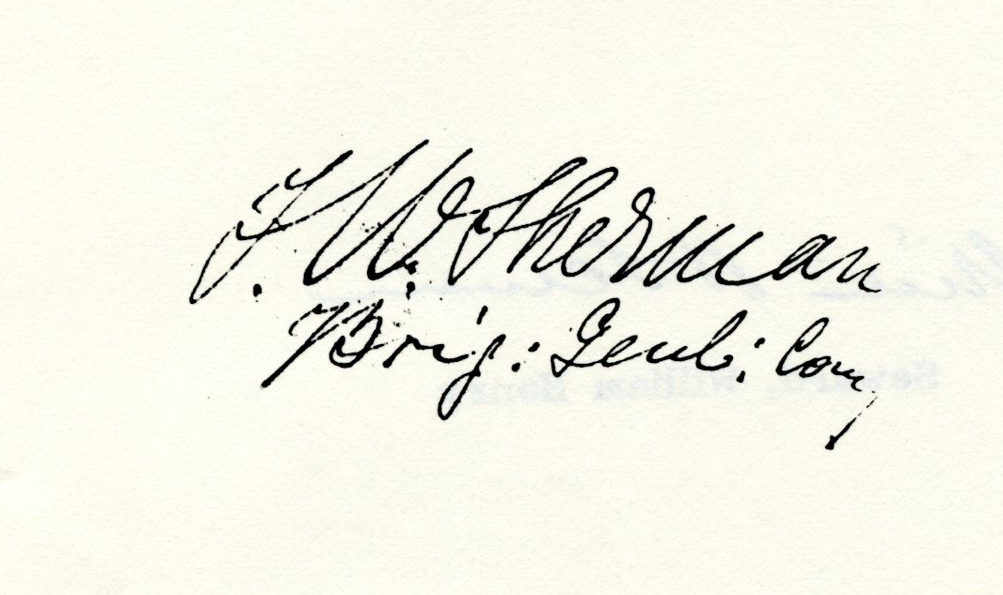 T. W. Sherman
Brig: Genl: Comg